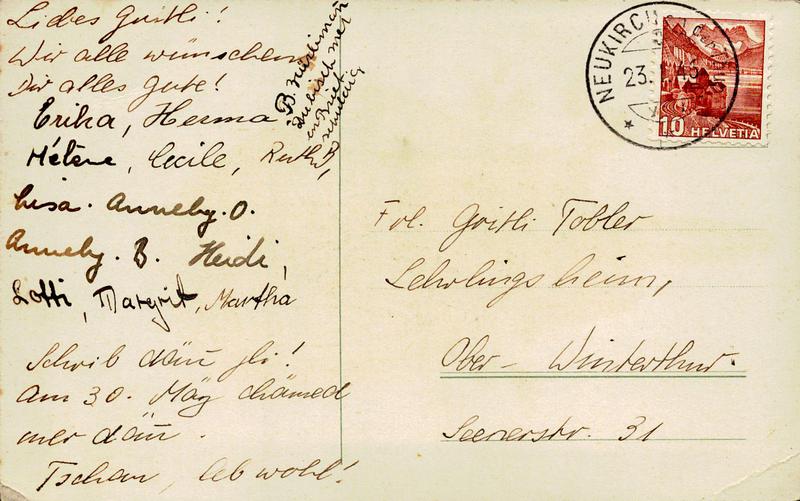 Liebes Gritli!
Wir alle wünschen
Dir alles Gute!
Erika, Herma
Hélène, Cécile, Ruth,
Lisa. Anneby. O.
Anneby. B. Heidi,
Lotti, Margrit, Martha
Schrib dänn gli!
Am 30. Mäy chämed
mer dänn.
Tschau, leb wohl!
B.
NEUKIRCH
23.
10 HELVETIA
Frl. Gritli Tobler
Lehrlingsheim,
Ober-Winterthur.
Seenerstr. 31